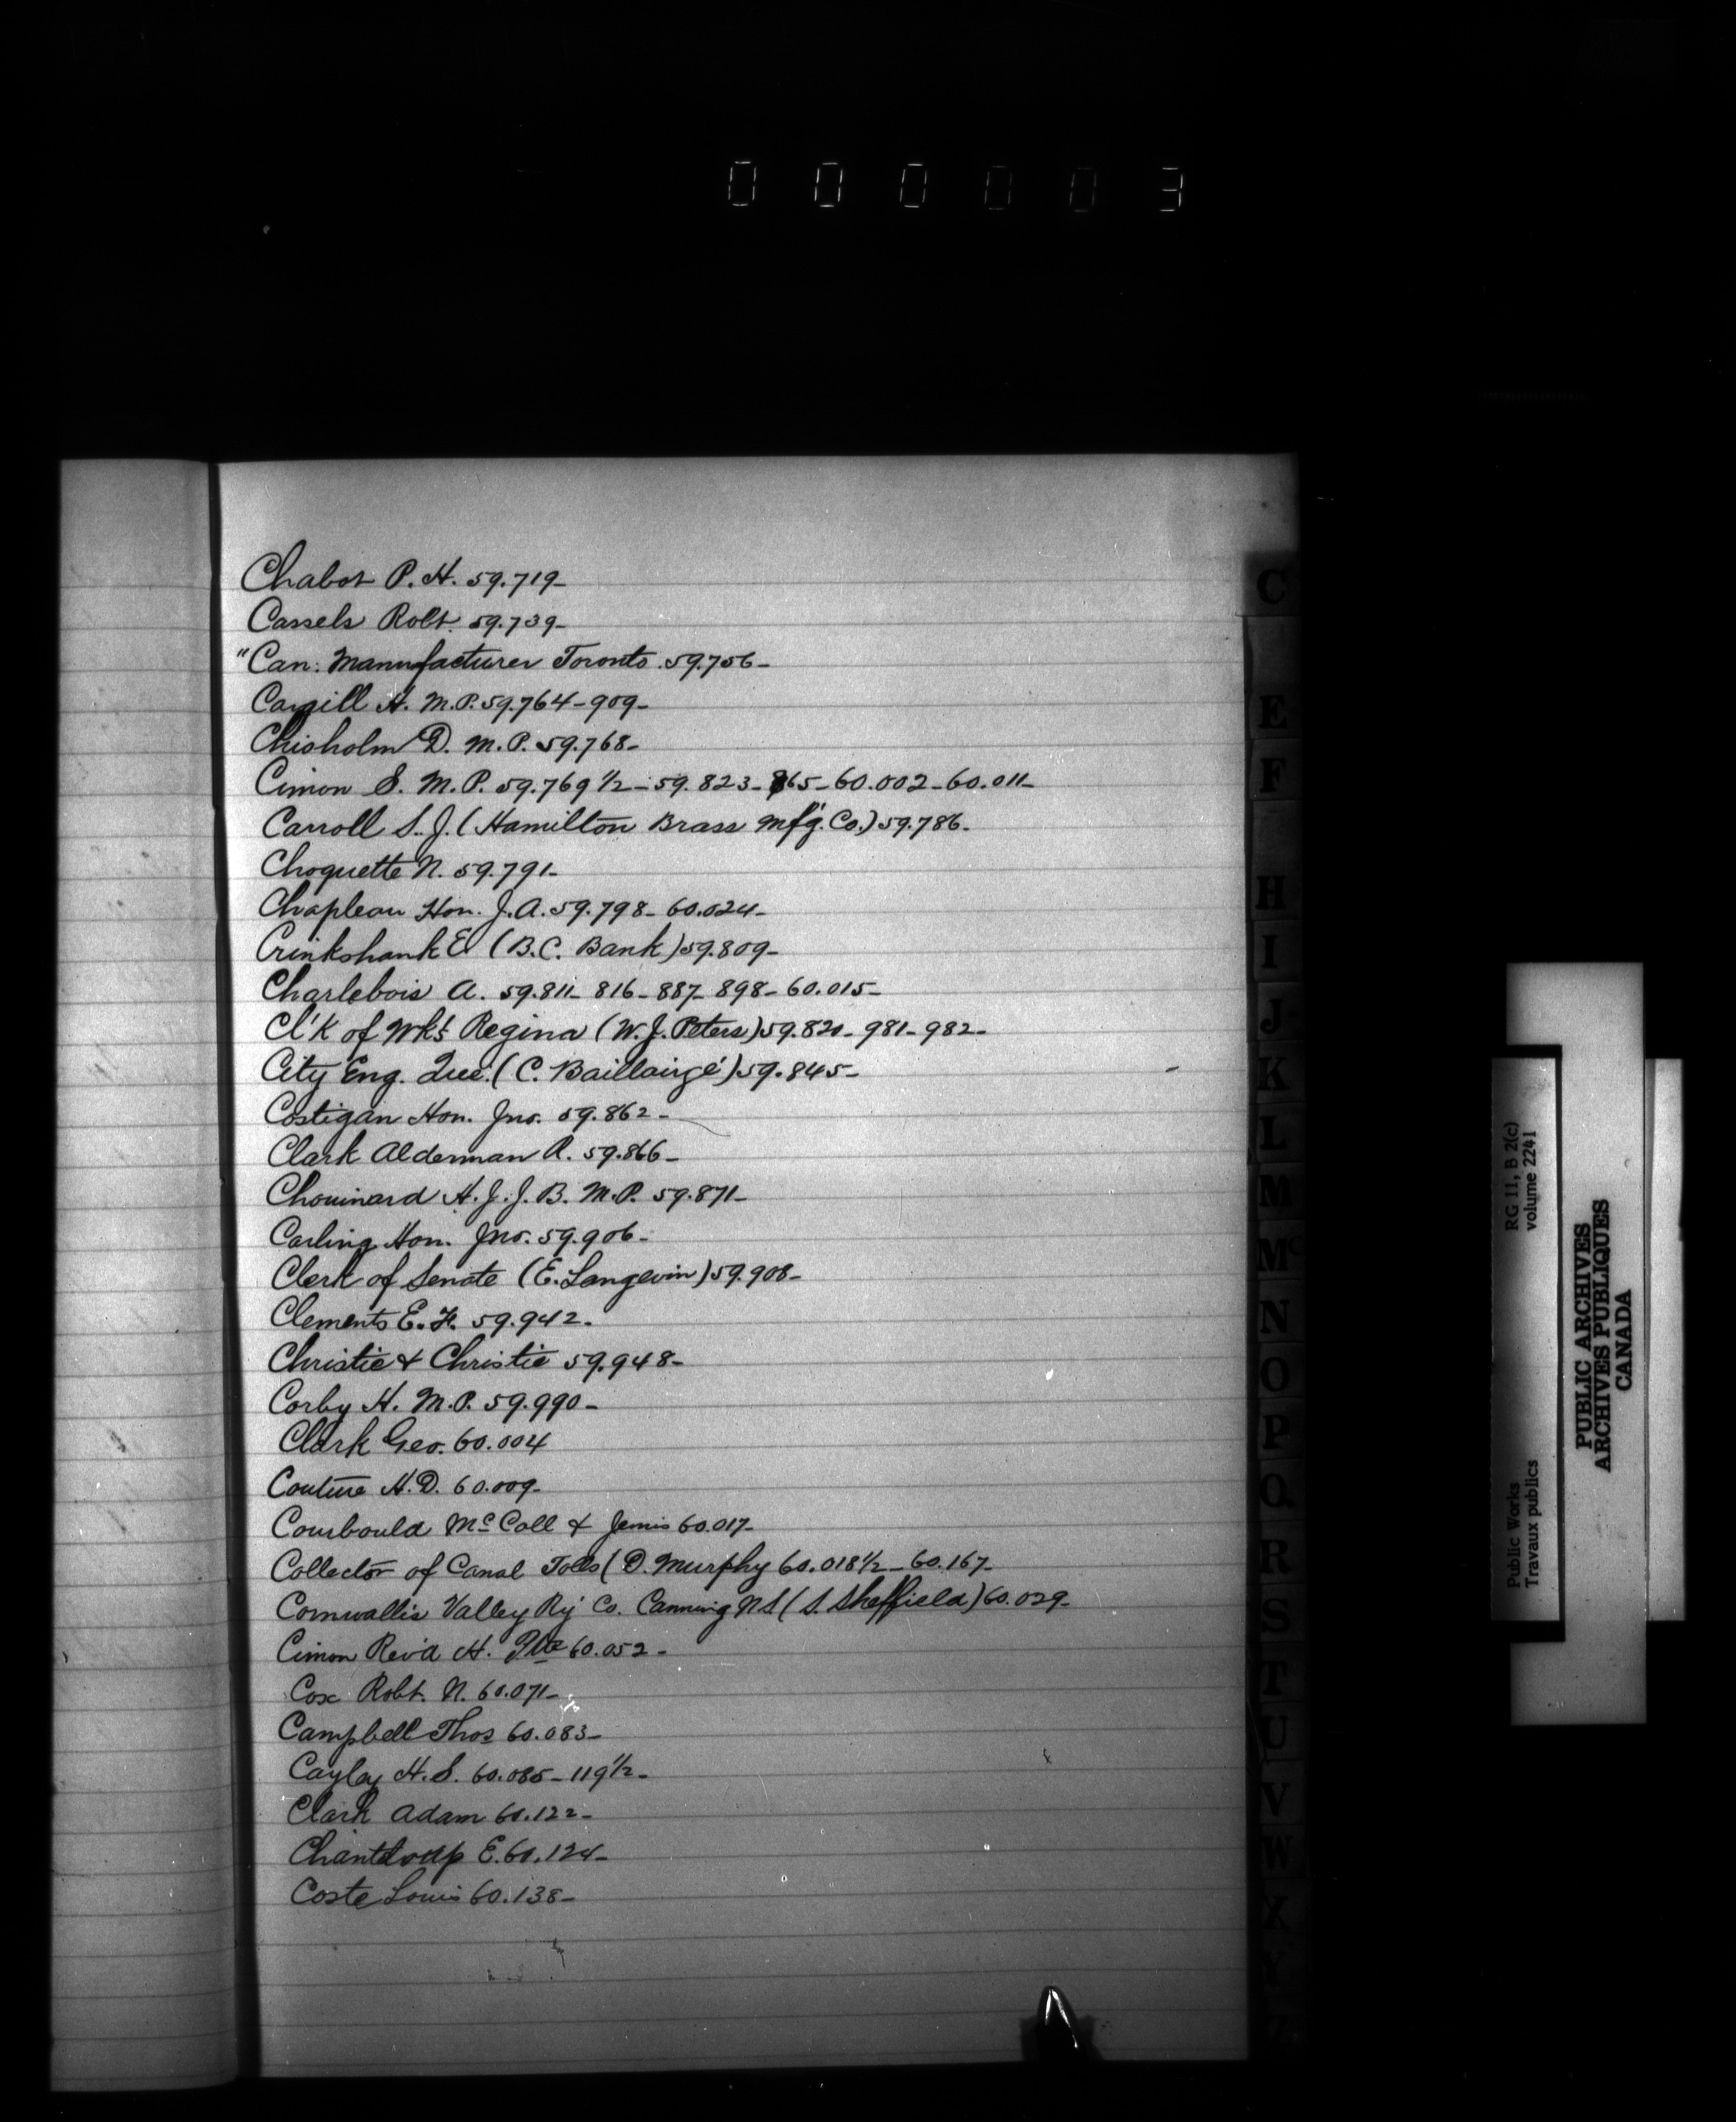 000003
Chabot P. H. 59.719-
Cassels Robt. 59.739-
"Can: Manufacturer Toronto. 59.756-
Cargill H. M.P. 59.764-909-
Chisholm D. M.P. 59.768-
Cimon S. M.P. 59.769 1/2-59.823-865-60.002-60.011-
Carroll S. J. (Hamilton Brass Mf'g. Co.) 59.786-
Choquette N. 59.791-
Chapleau Hon. J.A. 59.798-60.024-
Crinkshank E (B.C. Bank) 59.809-
Charlebois A. 59.811-816-887-898-60.015-
Cl'k of Wks Regina (W. J. Peters) 59.820-981-982-
City Eng. Que. (C. Baillairgé) 59.845-
Costigan Hon. Jno. 59.862-
Clark Alderman R. 59.866-
Chouinard H. J. J. B. M.P. 59.871-
Carling Hon. Jno. 59.906-
Clerk of Senate (E. Langevin) 59.908-
Clements E. F. 59.942-
Christie & Christie 59.948-
Corby H. M.P. 59.990-
Clark Geo. 60.004
Couture H.D. 60.009-
Courbould McColl & Jemis 60.017-
Collector of Canal Tolls (D. Murphy 60.018 1/2-60.167-
Cornwallis Valley Ry Co. Canning NS (S. Sheffield) 60.029-
Cimon Rev'd H. Ptre 60.052-
Cox Robt. N. 60.071-
Campbell Thos 60.083-
Cayley H.S. 60.085-119 1/2-
Clark Adam 60.122-
Chanteloup E. 60.124-
Coste Louis 60.138-
C
E
F
H
I
J
K
L
M
Mc
N
O
P
Q
R
S
T
U
V
W
X
Y
Z
RG 11, B 2(c)
volume 2241
Public Works
Travaux publics
PUBLIC ARCHIVES
ARCHIVES PUBLIQUES
CANADA